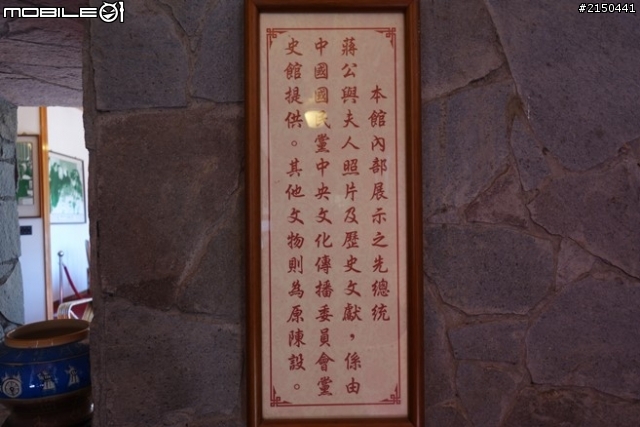 MOBILE01
#2150441
本館內部展示之先總統
蔣公與夫人照片及歷史文獻，係由
中國國民黨中央文化傳播委員會黨
史館提供。其他文物則為原陳設。